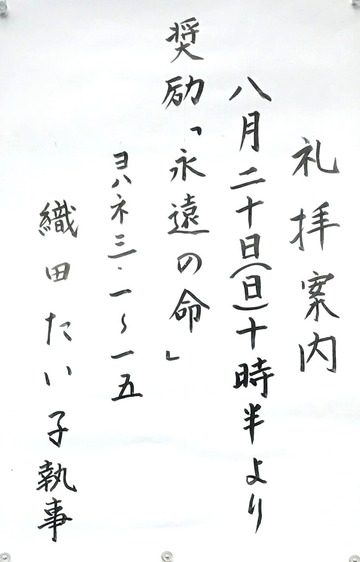 礼拝案内
八月二十日(日)十時半より
奨励「永遠の命」
ヨハネ三・一~一五
織田たい子執事